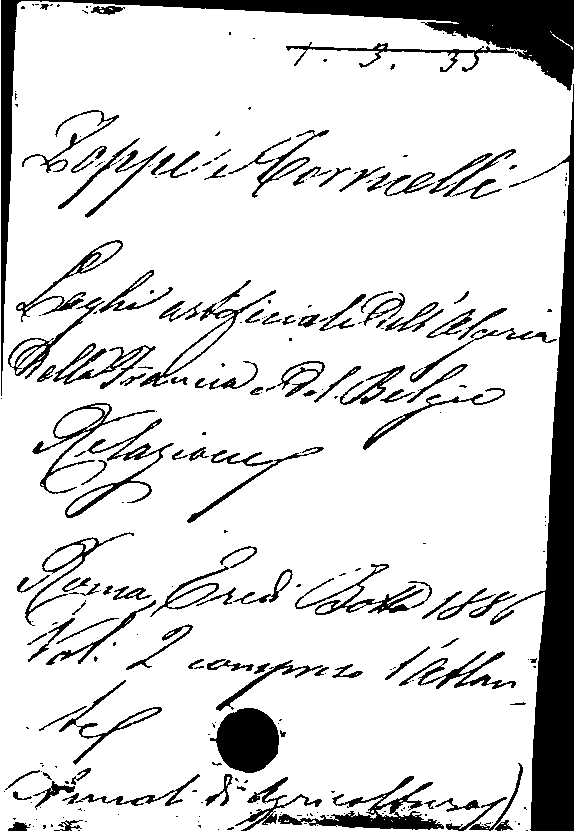 1. 3. 35
Zoppi e Torricelli
Laghi artificiali dell'Algeria
della Francia e del Belgio
Relazione
Roma, Eredi Botta 1886
Vol. 2 compreso l'Atlan
te
(Annali di Agricoltura)